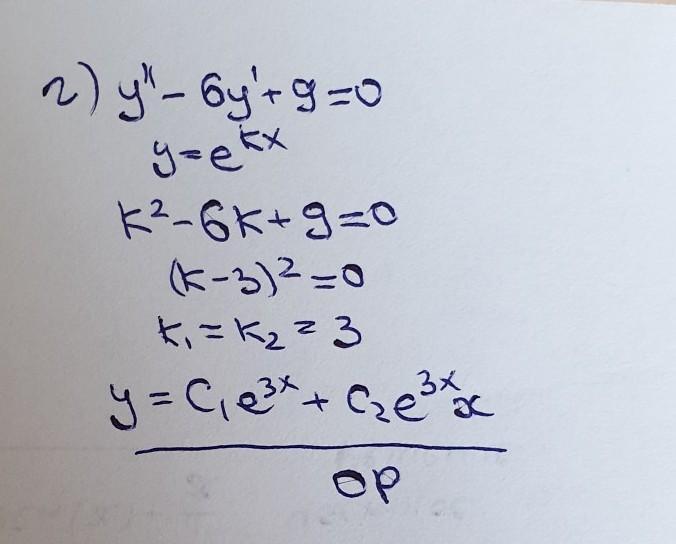 г) y'' - 6y' + 9 = 0
y = e^{kx}
k² - 6k + 9 = 0
(k - 3)² = 0
k₁ = k₂ = 3
y = C₁e^{3x} + C₂e^{3x}x
ОР